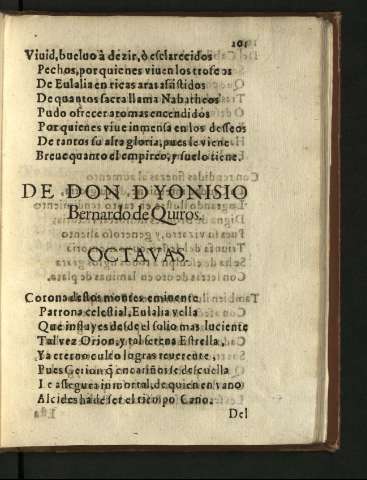 101
Viuid, bueluo à dezir, ò esclarecidos
Pechos, por quienes viuen los trofeos
De Eulalia en ricas aras assistidos
De quantos sacra llama Nabatheos
Pudo ofrecer aromas encendidos
Por quienes viue inmensa en los desseos
De tantos su alta gloria, pues le viene
Breue quanto el empireo, y suelo tiene.
DE DON DYONISIO
Bernardo de Quiros.
OCTAVAS.
Corona destos montes eminente
Patrona celestial, Eulalia vella
Que influyes desde el solio mas luciente
Tal vez Orion, y tal serena Estrella,
Ya eterno culto logras reuerente,
Pues Gerion q̃ en cariños se descuella
Le assegura inmortal, de quien en vano
Alcides ha de ser el tiempo Cano.
Del